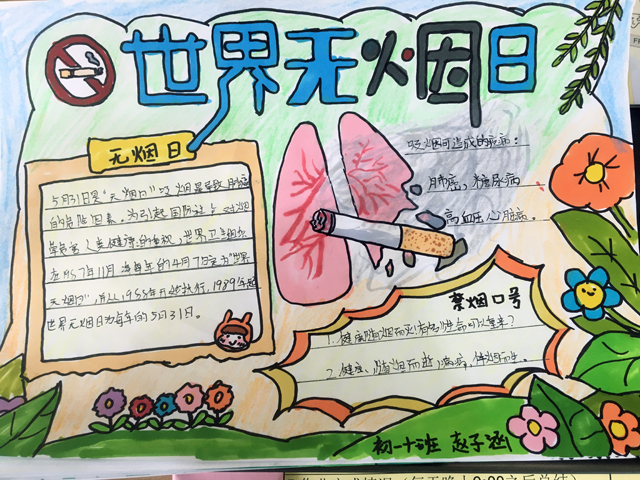 世界无烟日
无烟日
5月31日是“无烟日”吸烟是导致肺癌
的危险因素。为引起国际社会对烟
草危害人类健康的重视,世界卫生组织
在1987年11月 将每年的4月7日定为“世界
无烟日”,并从1988年开始执行,1989年起
世界无烟日为每年的5月31日。
吸烟可造成的疾病:
肺癌,糖尿病
高血压,心脏病。
禁烟口号
1.健康随烟而
2.健康、随烟而逝;病痛,伴烟而生。
初一十班 赵子涵